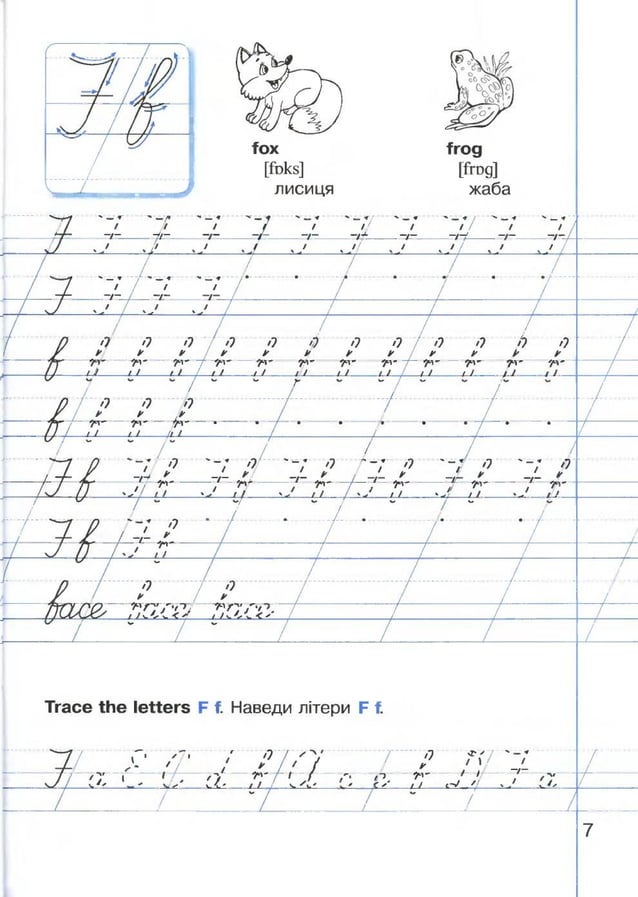 F f
fox frog
[fɒks] [frɒg]
лисиця жаба
F F F F F F F F F F F
F F F F
f f f f f f f f f f f f f
f f f f
Ff Ff Ff Ff Ff Ff Ff
Ff Ff
face face face
Trace the letters F f. Наведи літери F f.
F a E C d f A c e f D F a
7